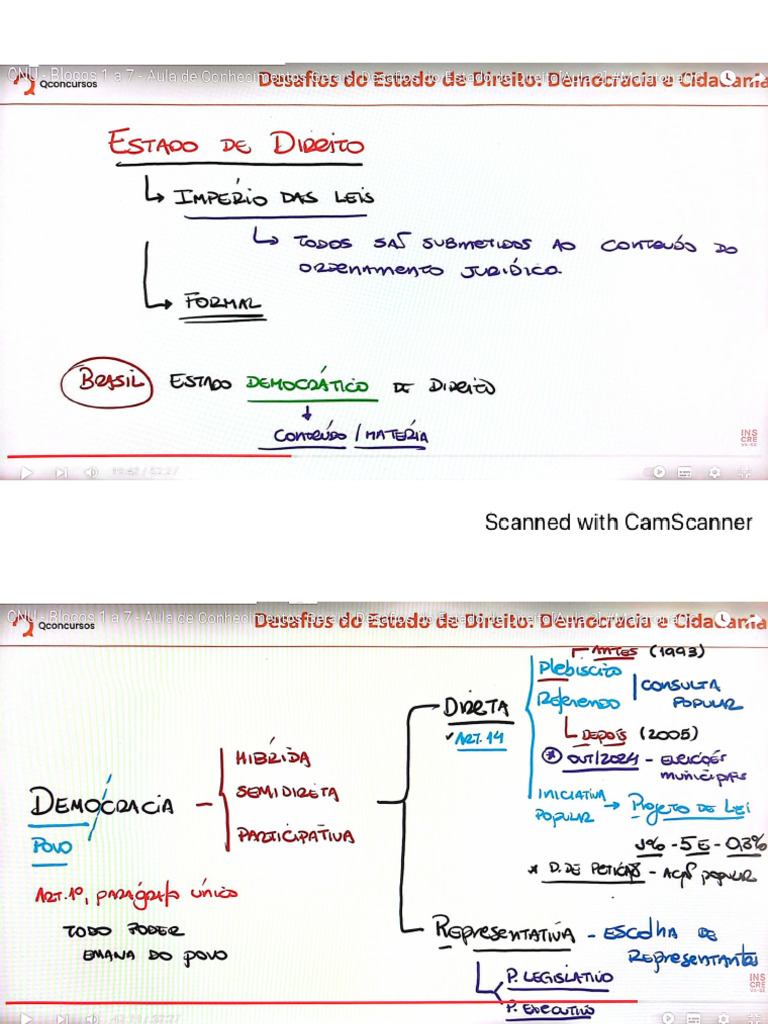 CNU - Blocos 1 a 7 - Aula de Conhecimentos Gerais: Desafios do Estado de Direito [Aula 2] #Maratona
Qconcursos
Desafios do Estado de Direito: Democracia e Cidadania
ESTADO DE DIREITO
IMPÉRIO DAS LEIS
TODOS SÃO SUBMETIDOS AO CONTEÚDO DO
ORDENAMENTO JURÍDICO.
FORMAL
BRASIL ESTADO DEMOCRÁTICO DE DIREITO
CONTEÚDO / MATÉRIA
INS
CRE
VA-SE
19:42 / 52:27
Scanned with CamScanner
CNU - Blocos 1 a 7 - Aula de Conhecimentos Gerais: Desafios do Estado de Direito [Aula 2] #Maratona
Qconcursos
Desafios do Estado de Direito: Democracia e Cidadania
ANTES (1993)
Plebiscito
Referendo
CONSULTA
POPULAR
DIRETA
ART. 14
DEPOIS (2005)
OUT/2024 - ELEIÇÕES
MUNICIPAIS
HÍBRIDA
SEMIDIRETA
PARTICIPATIVA
DEMOCRACIA
POVO
INICIATIVA
POPULAR
PROJETO DE LEI
1% - 5E - 0,3%
* D. DE PETIÇÃO - AÇÃO POPULAR
ART. 1º, PARÁGRAFO ÚNICO
TODO PODER
EMANA DO POVO
REPRESENTATIVA - ESCOLHA DE
REPRESENTANTES
P. LEGISLATIVO
P. EXECUTIVO
INS
CRE
VA-SE